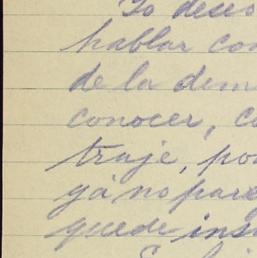 Yo deseo
hablar con
de la dem
conocer, co
traje, por
yá no pare
quede ins